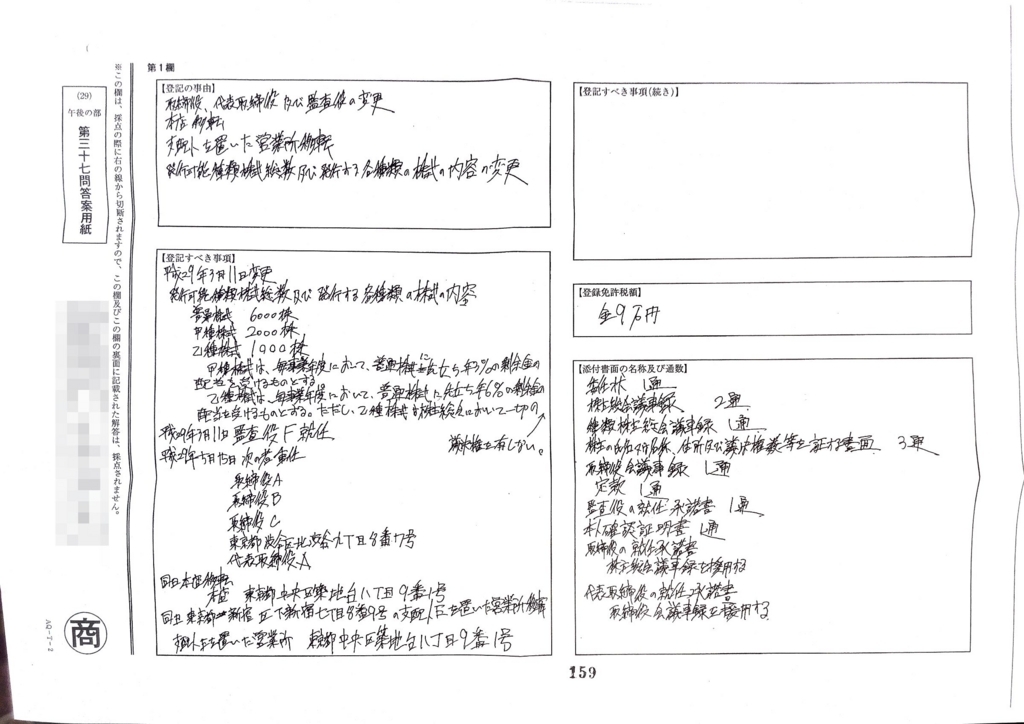 第1欄
【登記の事由】
取締役、代表取締役及び監査役の変更
本店移転
支配人を置いた営業所移転
発行可能種類株式総数及び発行する各種類の株式の内容の変更
【登記すべき事項】
平成29年3月11日変更
発行可能種類株式総数及び発行する各種類の株式の内容
普通株式 6000株
甲種株式 2000株
乙種株式 1000株
甲種株式は、毎事業年度において、普通株式に先立ち年3%の剰余金の
配当を受けるものとする
乙種株式は、毎事業年度において、普通株式に先立ち年6%の剰余金の
配当を受けるものとする。ただし、乙種株式は株主総会において一切の
議決権を有しない。
平成29年3月11日監査役F就任
平成29年5月15日次の者重任
取締役A
取締役B
取締役C
東京都渋谷区北渋谷六丁目8番7号
代表取締役A
同日本店移転
本店 東京都中央区築地台八丁目9番1号
同日東京都新宿区下新宿七丁目8番9号の支配人Eを置いた営業所移転
支配人Eを置いた営業所 東京都中央区築地台八丁目9番1号
【登記すべき事項(続き)】
【登録免許税額】
金9万円
【添付書面の名称及び通数】
委任状 1通
株主総会議事録 2通
種類株主総会議事録 1通
株主の氏名又は名称、住所及び議決権数等を証する書面 3通
取締役会議事録 1通
定款 1通
監査役の就任承諾書 1通
本人確認証明書 1通
取締役の就任承諾書
株主総会議事録を援用する
代表取締役の就任承諾書
取締役会議事録を援用する
(29)
午後の部
第三十七問答案用紙
※この欄は、採点の際に右の線から切断されますので、この欄及びこの欄の裏面に記載された解答は、採点されません。
商
AQ-T-2
159